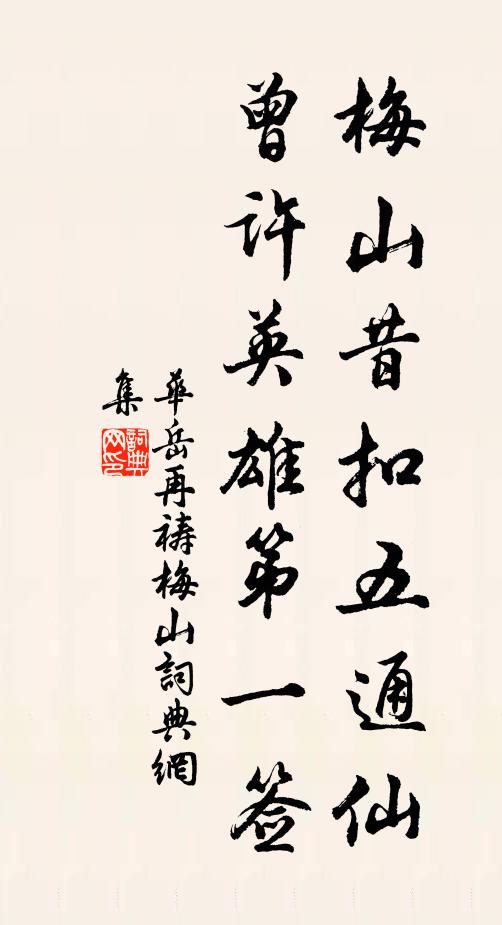 梅山昔扣五通仙
曾许英雄第一签
華岳再禱梅山詞典網
集
詞典
网印